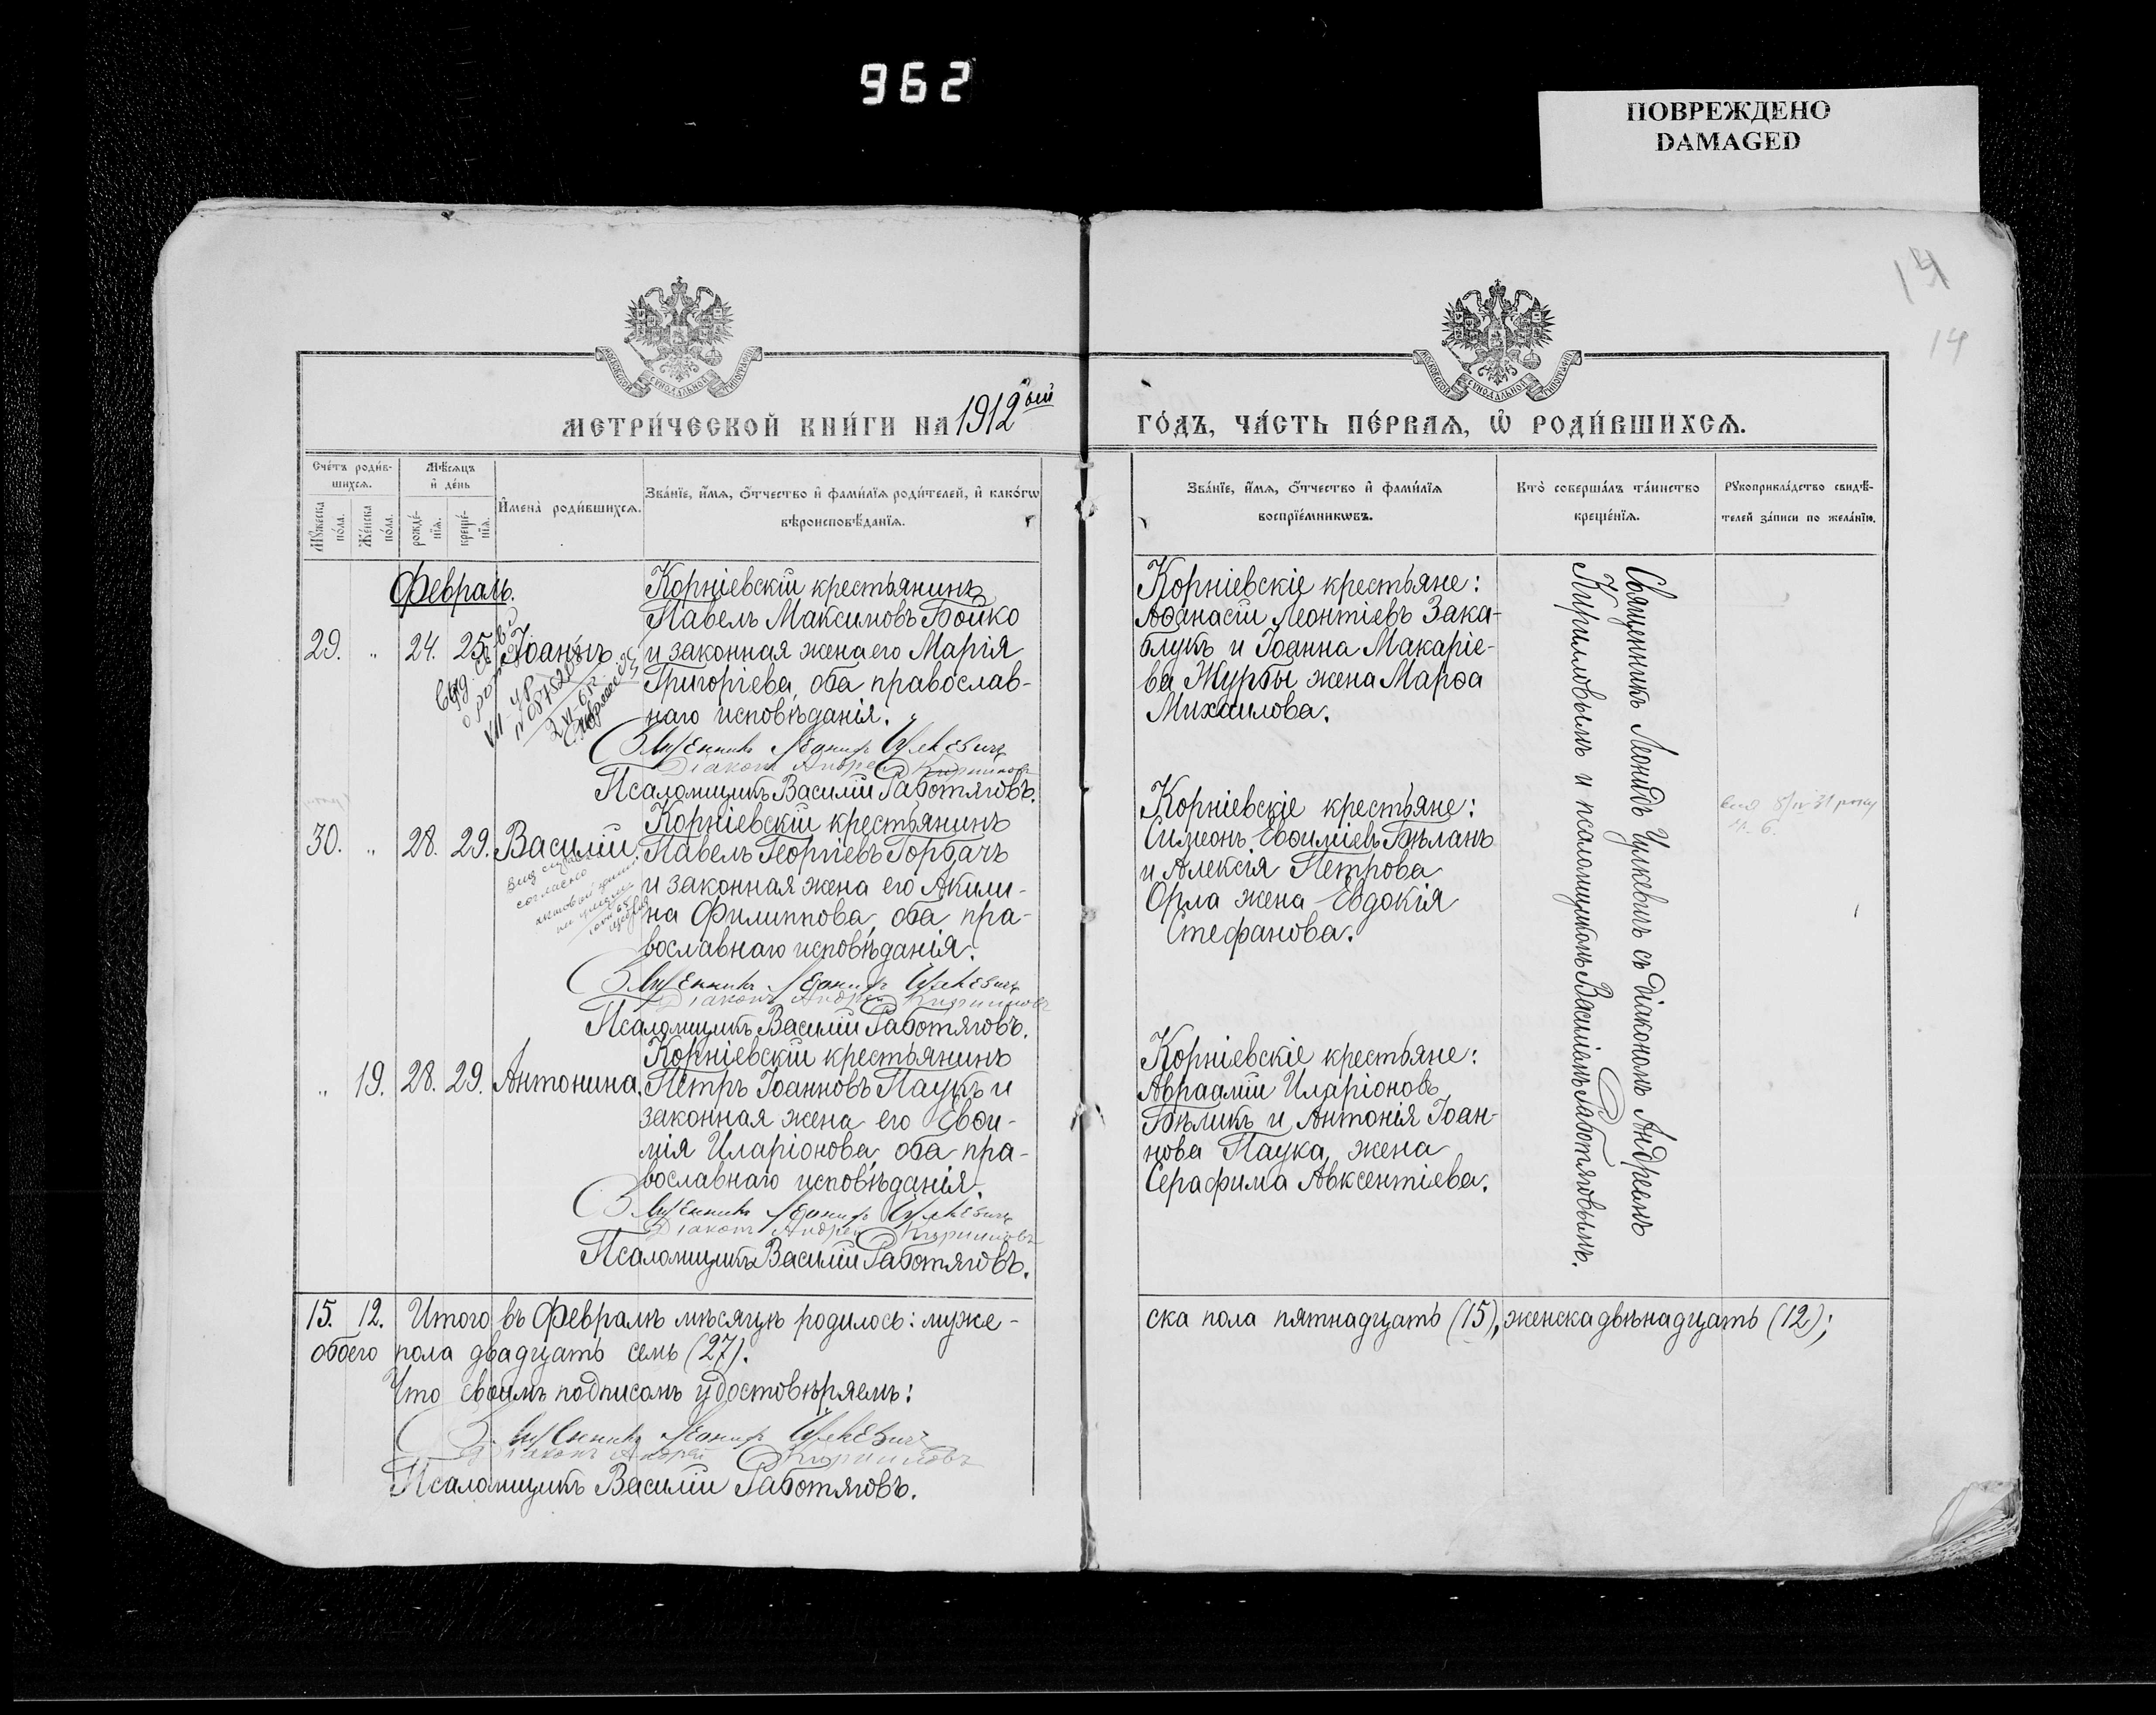 962
ПОВРЕЖДЕНО
DAMAGED
14
14
МЕТРИ́ЧЕСКОЙ КНИ́ГИ НА 1912ый
ГО́ДЪ, ЧА́СТЬ ПЕ́РВАѦ, Ѡ҆ РОДИ́ВШИХСѦ.
Сче́тъ роди́в-
шихсѧ.
Мꙋ́жеска
по́ла.
Же́нска
по́ла.
Мѣ́сѧцъ
и҆ де́нь
рожде́-
нїѧ.
креще́-
нїѧ.
И҆мена̀ роди́вшихсѧ.
Зва́нїе, и҆́мѧ, ѻ҆́тчество и҆ фами́лїѧ роди́телей, и҆ како́гѡ
вѣроисповѣ́данїѧ.
Зва́нїе, и҆́мѧ, ѻ҆́тчество и҆ фами́лїѧ
воспрїе́мникѡвъ.
Кто̀ соверша́лъ та́инство
креще́нїѧ.
Рꙋкоприкла́дство свидѣ́-
телей за́писи по жела́нїю.
Февраль.
29. „ 24. 25. Іоаннъ
Корніевскій крестьянинъ
Павелъ Максимовъ Бойко
и законная жена его Марія
Григоріева, оба православ-
наго исповѣданія.
Священникъ Леонидъ Цулкевичъ
Діаконъ Андрей Кирилловъ
Псаломщикъ Василій Работяговъ.
Корніевскіе крестьяне:
Аѳанасій Леонтіевъ Зака-
блукъ и Іоанна Макаріе-
ва Журбы жена Марѳа
Михаилова.
30. „ 28. 29. Василій.
Корніевскій крестьянинъ
Павелъ Георгіевъ Горбачъ
и законная жена его Акили-
на Филиппова, оба пра-
вославнаго исповѣданія.
Священникъ Леонидъ Цулкевичъ
Діаконъ Андрей Кирилловъ
Псаломщикъ Василій Работяговъ.
Корніевскіе крестьяне:
Симеонъ Евѳиміевъ Бѣланъ
и Алексія Петрова
Орла жена Евдокія
Стефанова.
„ 19. 28. 29. Антонина.
Корніевскій крестьянинъ
Петръ Іоанновъ Паукъ и
законная жена его Евѳи-
мія Иларіонова, оба пра-
вославнаго исповѣданія.
Священникъ Леонидъ Цулкевичъ
Діаконъ Андрей Кирилловъ
Псаломщикъ Василій Работяговъ.
Корніевскіе крестьяне:
Авраамій Иларіоновъ
Бѣликъ и Антонія Іоан-
нова Паука жена
Серафима Авксентіева.
Священникъ Леонидъ Цулкевичъ съ діакономъ Андреемъ
Кирилловымъ и псаломщикомъ Василіемъ Работяговымъ.
15. 12. Итого въ Февралѣ мѣсяцѣ родилось: муже-
ска пола пятнадцать (15), женска двѣнадцать (12);
обоего пола двадцать семь (27).
Что своимъ подписомъ удостовѣряемъ:
Священникъ Леонидъ Цулкевичъ
Діаконъ Андрей Кирилловъ
Псаломщикъ Василій Работяговъ.